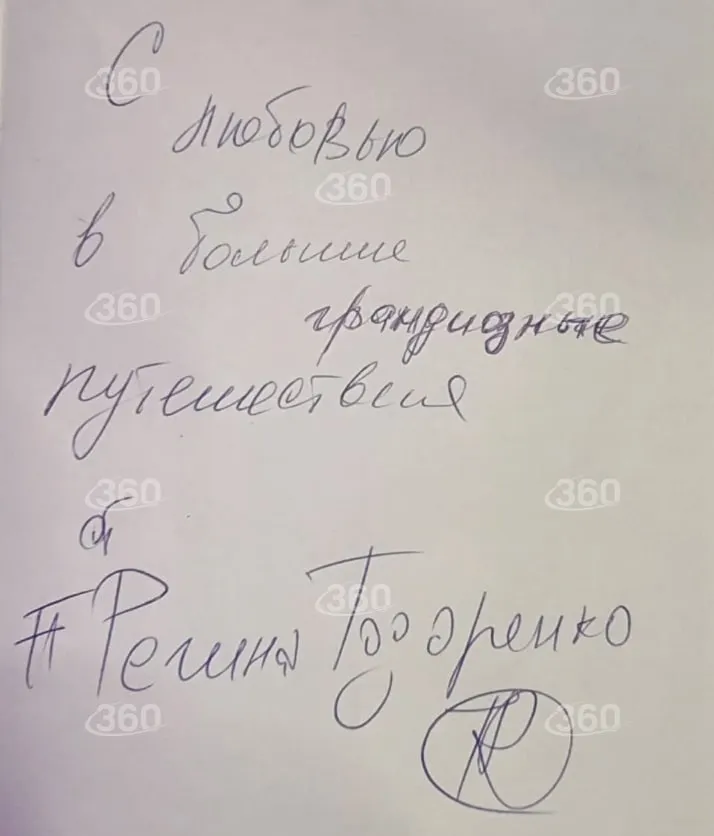 С
любовью
в большие
грандиозные
путешествия
от
#Регина Тодоренко
360
360
360
360
360
360
360
360
360
360